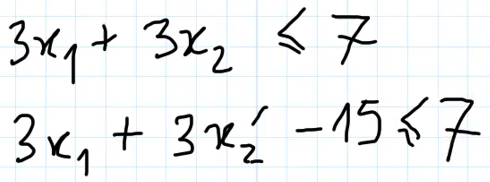 3x₁ + 3x₂ ≤ 7
3x₁ + 3x₂′ − 15 ≤ 7